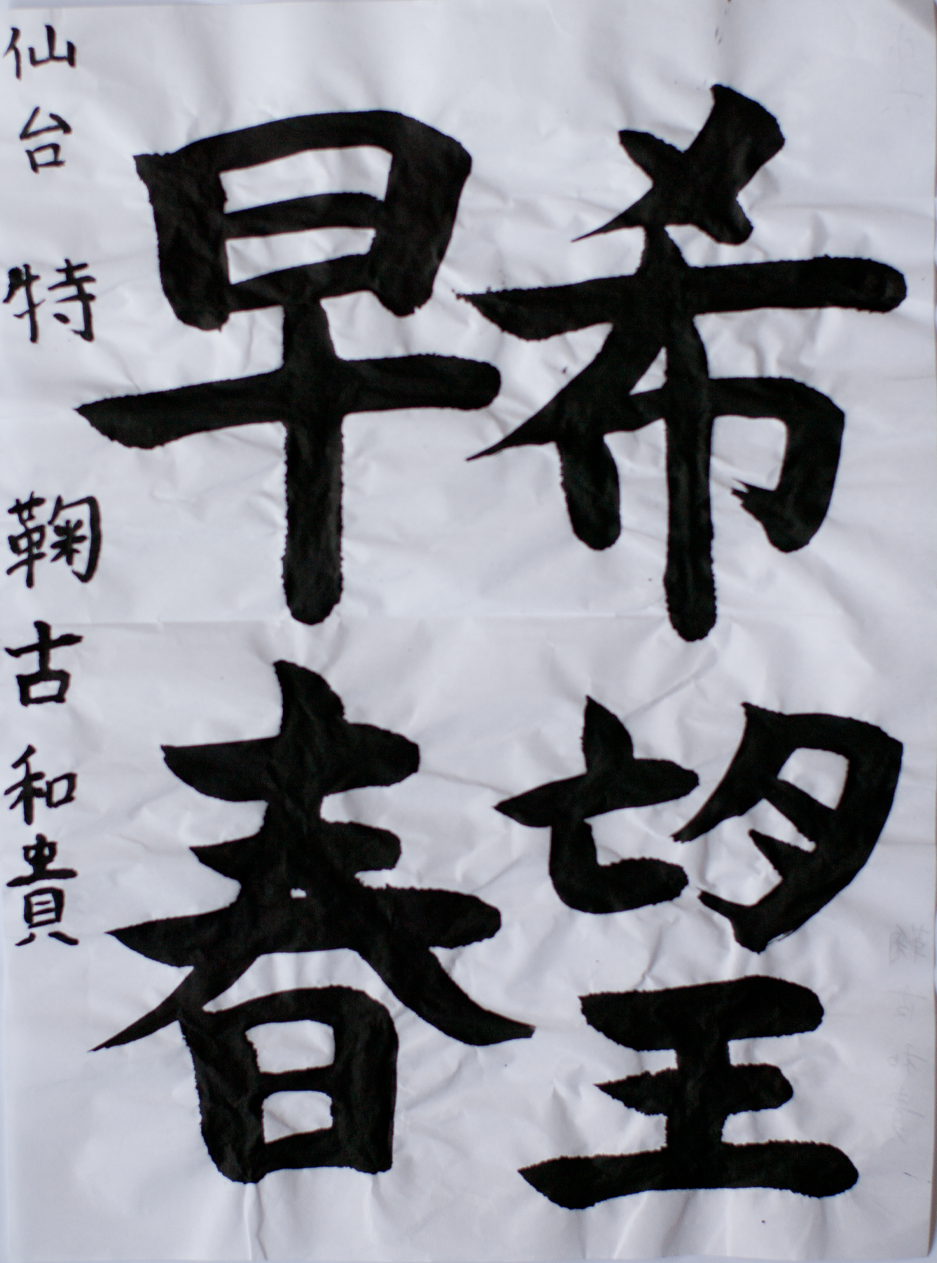 希望
早春
仙台 特 鞠古和貴